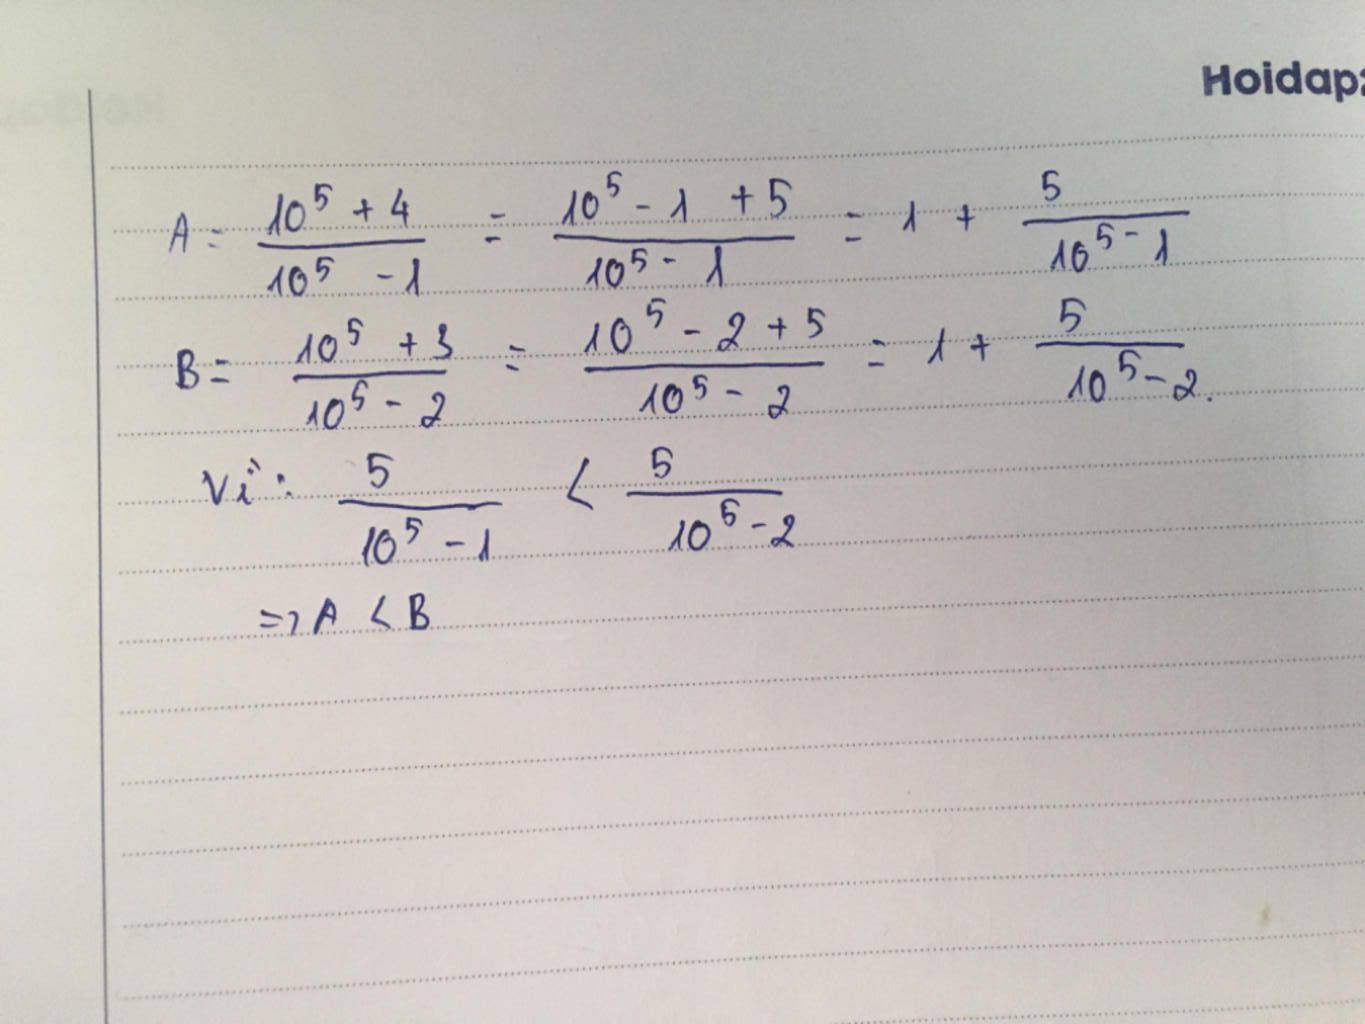 Hoidap
A = \frac{10^5 + 4}{10^5 - 1} = \frac{10^5 - 1 + 5}{10^5 - 1} = 1 + \frac{5}{10^5 - 1}
B = \frac{10^5 + 3}{10^5 - 2} = \frac{10^5 - 2 + 5}{10^5 - 2} = 1 + \frac{5}{10^5 - 2}.
Vì: \frac{5}{10^5 - 1} < \frac{5}{10^5 - 2}
=> A < B